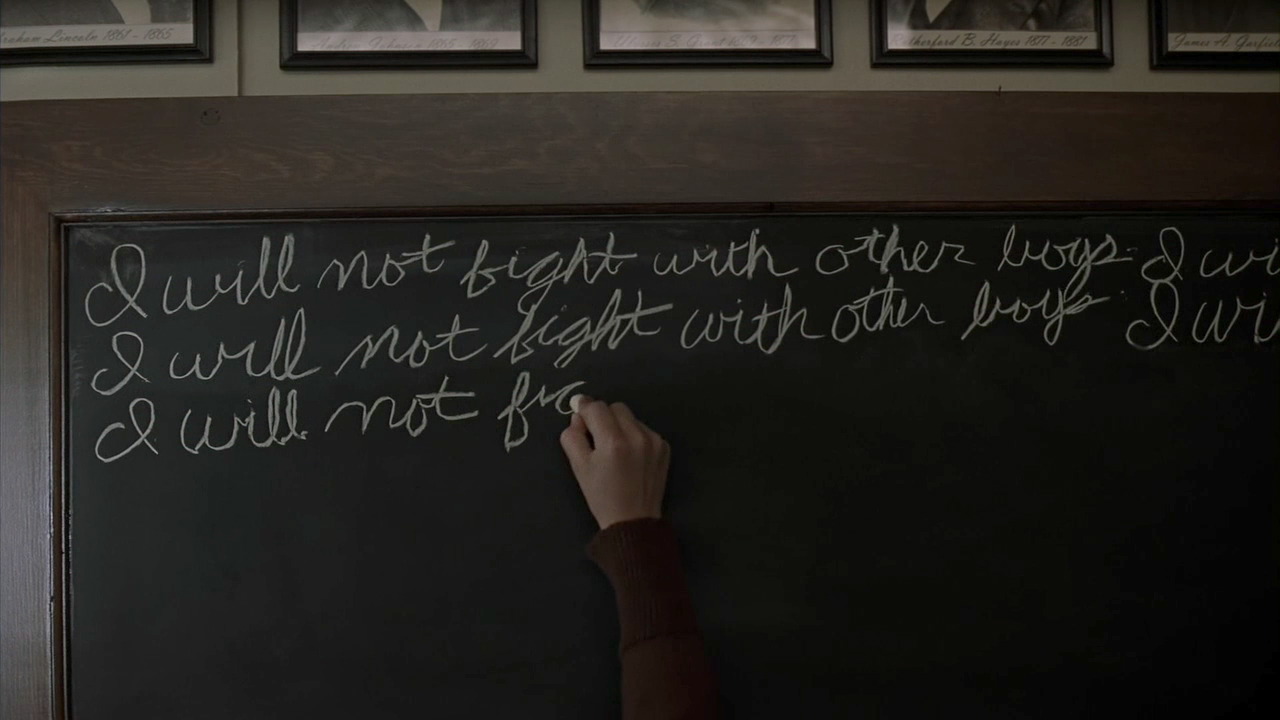 Abraham Lincoln 1861 - 1865
Andrew Johnson 1865 - 1869
Ulysses S. Grant 1869 - 1877
Rutherford B. Hayes 1877 - 1881
James A. Garfie
I will not fight with other boys. I wi
I will not fight with other boys. I wi
I will not fig